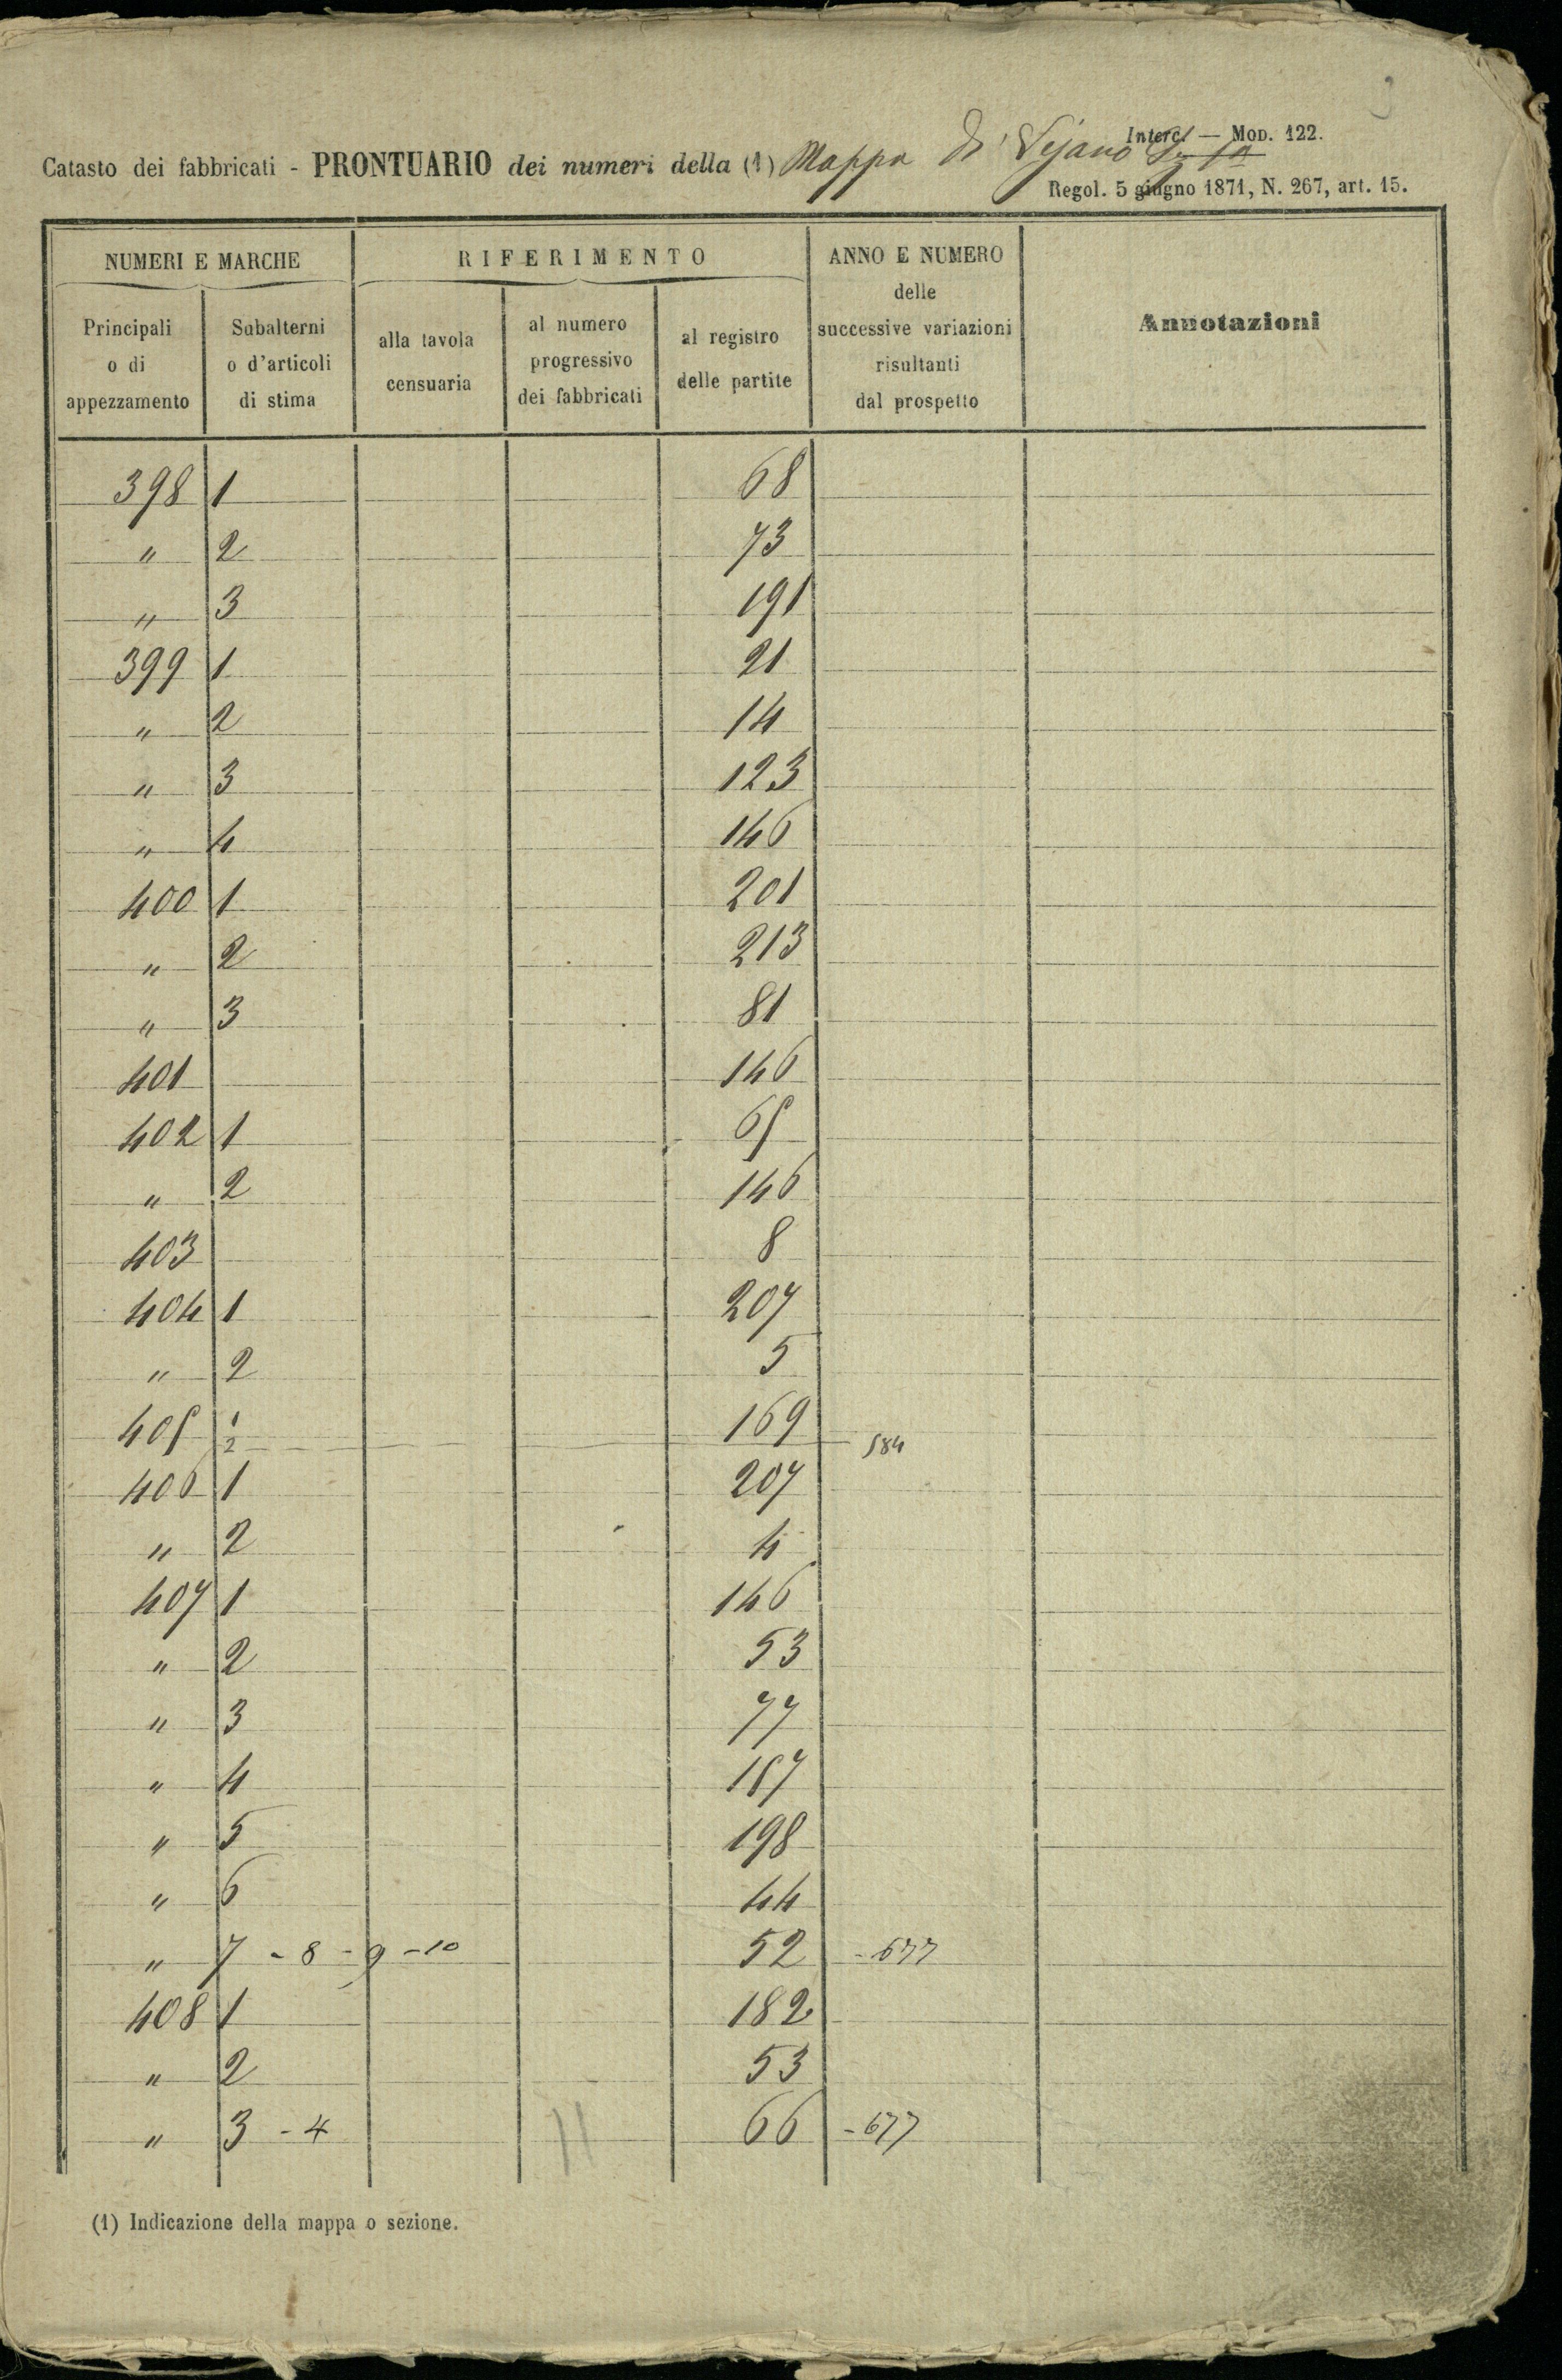 Interc. — MOD. 122.
Catasto dei fabbricati - PRONTUARIO dei numeri della (1) Mappa di Vejano
Regol. 5 giugno 1871, N. 267, art. 15.
NUMERI E MARCHE RIFERIMENTO ANNO E NUMERO delle successive variazioni risultanti dal prospetto Annotazioni
Principali o di appezzamento Subalterni o d'articoli di stima alla tavola censuaria al numero progressivo dei fabbricati al registro delle partite
398 1 68
" 2 73
" 3 191
399 1 21
" 2 14
" 3 123
" 4 146
400 1 201
" 2 213
" 3 81
401 146
402 1 65
" 2 146
403 8
404 1 207
" 2 5
405 1 169
2 584
406 1 207
" 2 4
407 1 146
" 2 53
" 3 77
" 4 157
" 5 198
" 6 44
" 7 - 8 - 9 - 10 52 - 677
408 1 182
" 2 53
" 3 - 4 66 - 677
(1) Indicazione della mappa o sezione.